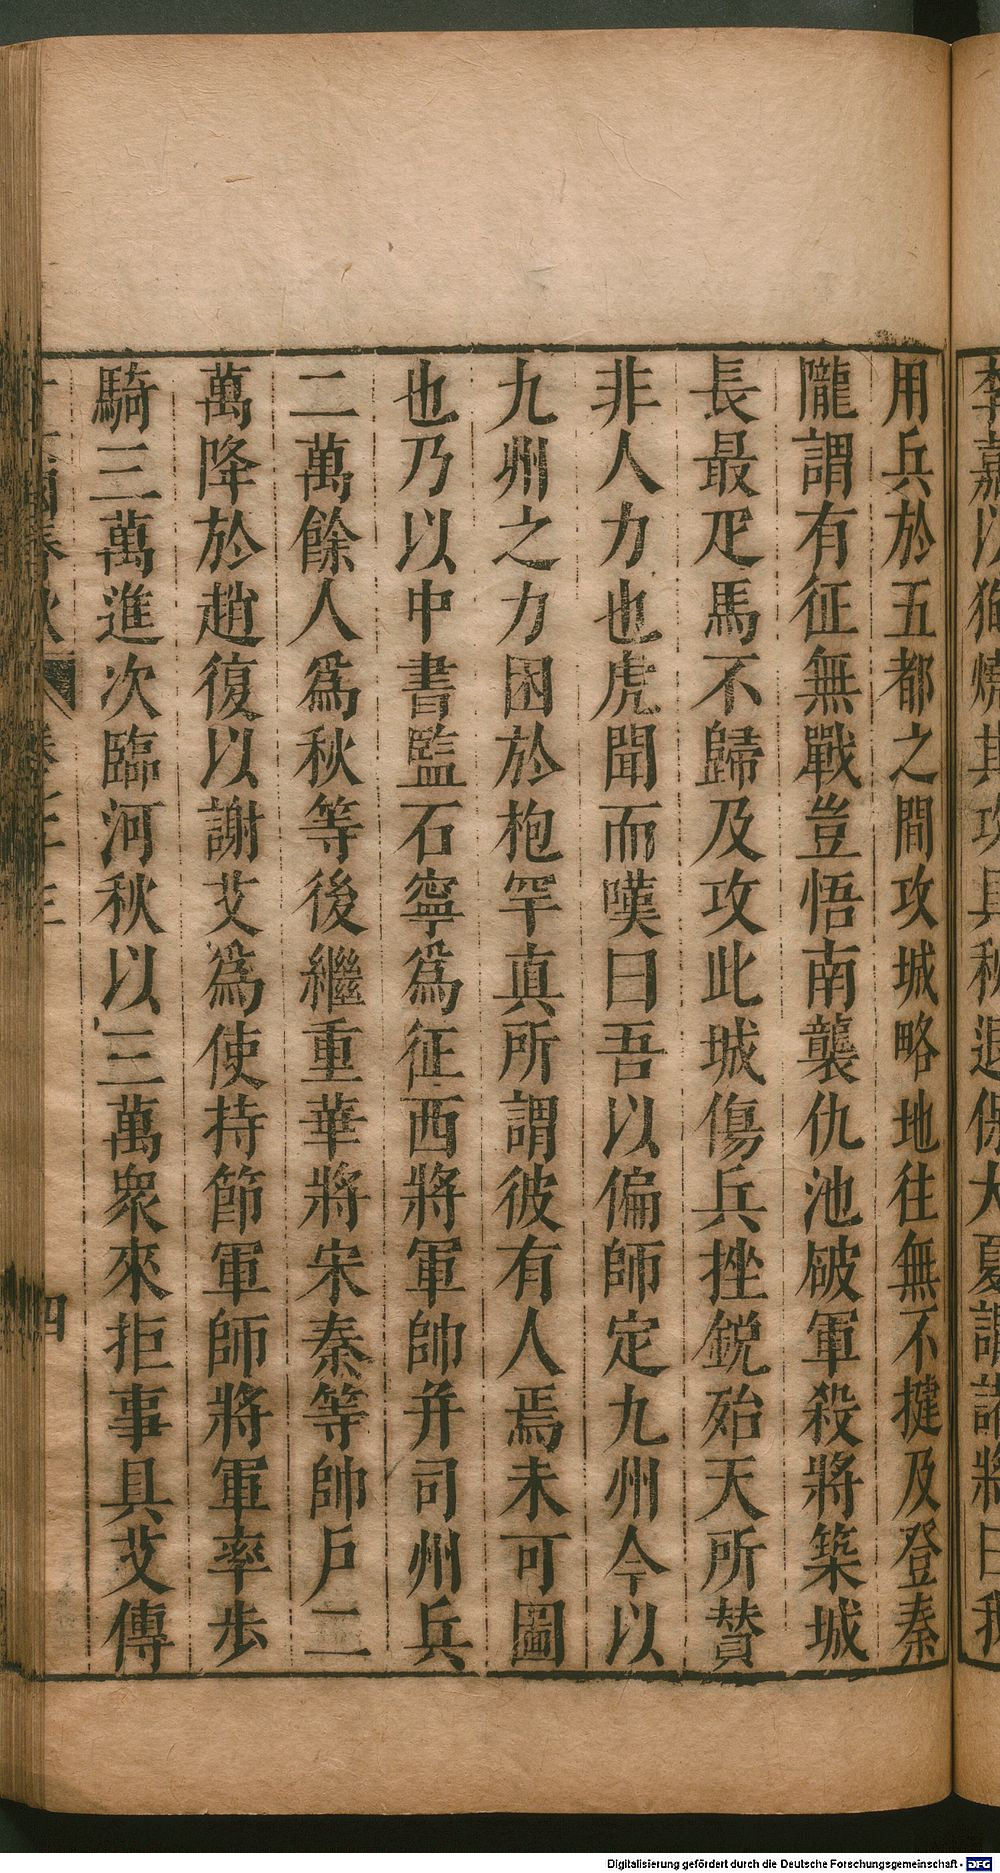 李嘉
用兵於五都之間攻城略地往無不揵及登秦
隴謂有征無戰豈悟南襲仇池破軍殺將築城
長最疋馬不歸及攻此城傷兵挫銳殆天所贊
非人力也虎聞而嘆曰吾以偏師定九州今以
九州之力困於枹罕真所謂彼有人焉未可圖
也乃以中書監石寧爲征西將軍帥并司州兵
二萬餘人爲秋等後繼重華將宋秦等帥戶二
萬降於趙復以謝艾爲使持節軍師將軍率步
騎三萬進次臨河秋以三萬衆來拒事具艾傳
四
Digitalisierung gefördert durch die Deutsche Forschungsgemeinschaft - DFG